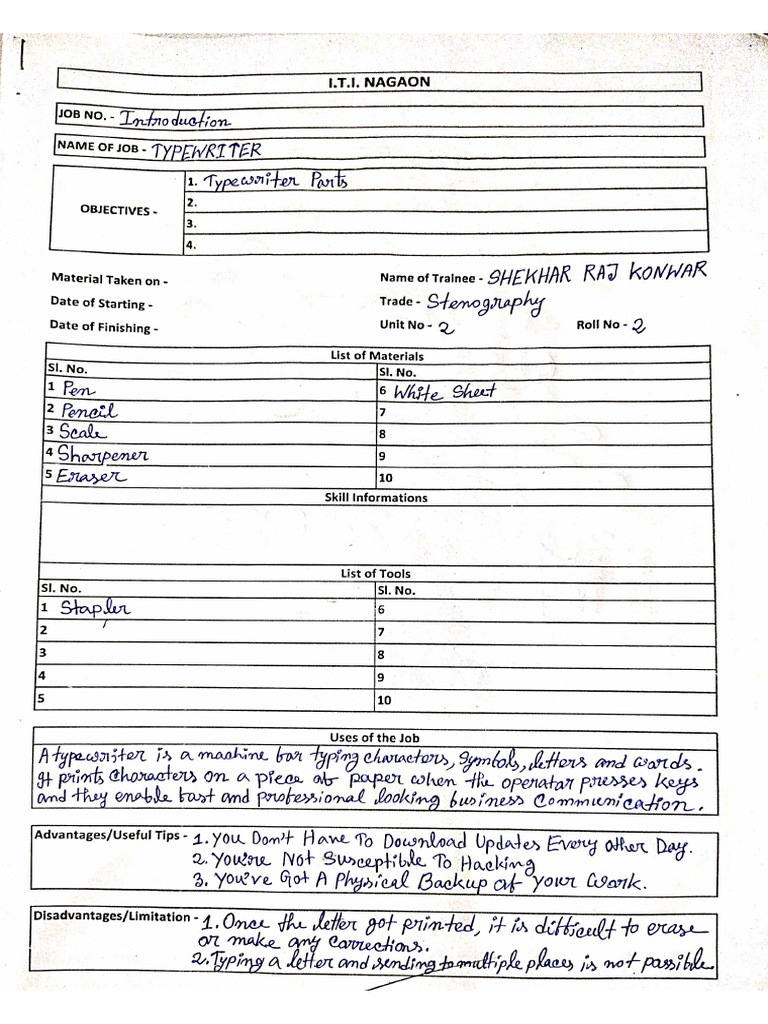 I.T.I. NAGAON
JOB NO. - Introduction
NAME OF JOB - TYPEWRITER
OBJECTIVES -
1. Typewriter Parts
2.
3.
4.
Material Taken on -
Name of Trainee - SHEKHAR RAJ KONWAR
Date of Starting -
Trade - Stenography
Date of Finishing -
Unit No - 2 Roll No - 2
List of Materials
Sl. No. Sl. No.
1 Pen 6 White Sheet
2 Pencil 7
3 Scale 8
4 Sharpener 9
5 Eraser 10
Skill Informations
List of Tools
Sl. No. Sl. No.
1 Stapler 6
2 7
3 8
4 9
5 10
Uses of the Job
A typewriter is a machine for typing characters, symbols, letters and words.
It prints characters on a piece of paper when the operator presses keys
and they enable fast and professional looking business communication.
Advantages/Useful Tips - 1. You Don't Have To Download Updates Every Other Day.
2. You're Not Susceptible To Hacking
3. You've Got A Physical Backup of Your Work.
Disadvantages/Limitation - 1. Once the letter got printed, it is difficult to erase
or make any corrections.
2. Typing a letter and sending to multiple places is not possible.